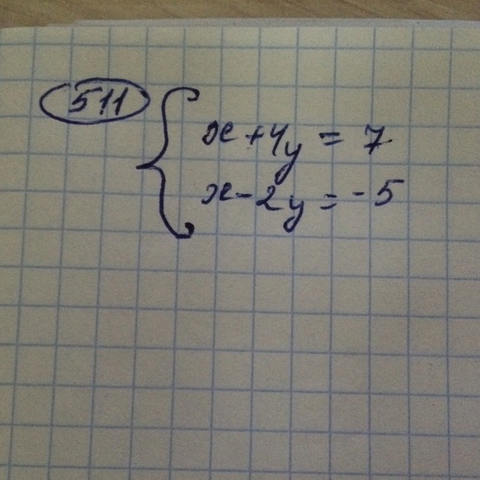 511
x + 4y = 7
x - 2y = -5